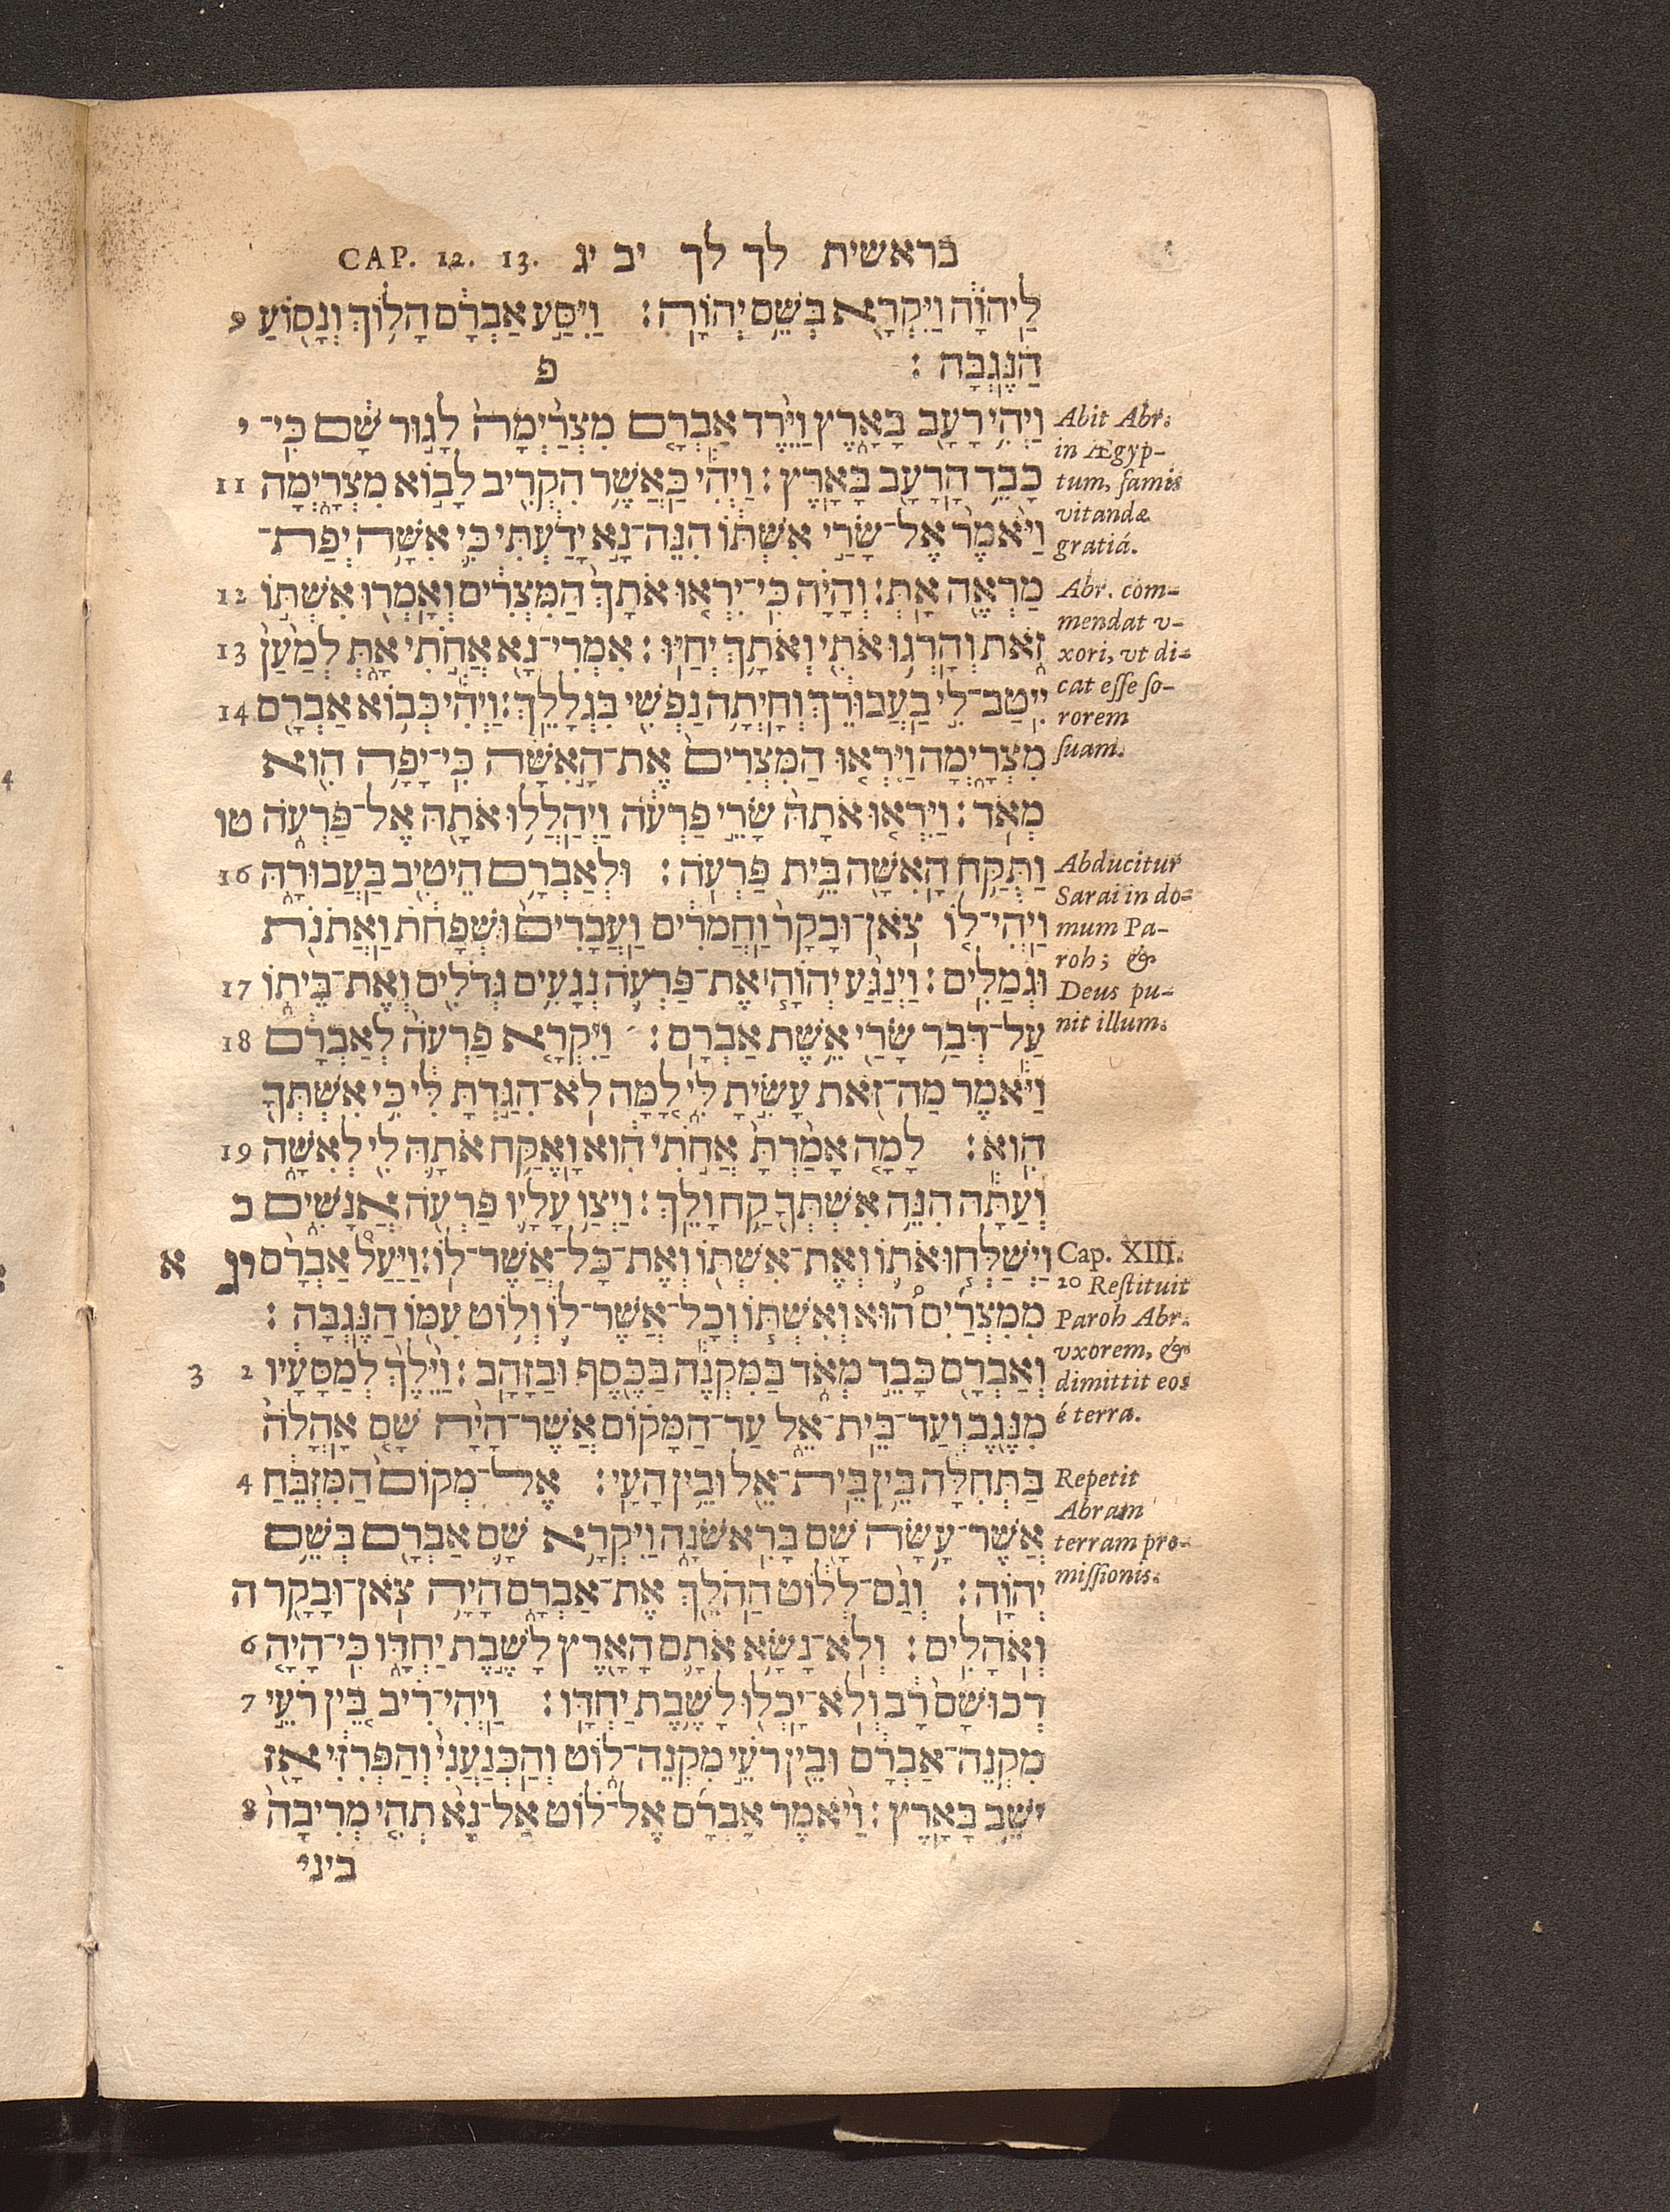 בראשית לך לך יב יג CAP. 12. 13.
לַֽיהוָֹ֔ה וַיִּקְרָ֖א בְּשֵׁ֥ם יְהוָֹֽה׃ וַיִּסַּ֣ע אַבְרָ֔ם הָל֥וֹךְ וְנָס֖וֹעַ 9
הַנֶּֽגְבָּה׃ פ
וַיְהִ֥י רָעָ֖ב בָּאָ֑רֶץ וַיֵּ֨רֶד אַבְרָ֤ם מִצְרַ֙יְמָה֙ לָג֣וּר שָׁ֔ם כִּֽי־ י
כָבֵ֥ד הָרָעָ֖ב בָּאָֽרֶץ׃ וַיְהִ֕י כַּאֲשֶׁ֥ר הִקְרִ֖יב לָב֣וֹא מִצְרָ֑יְמָה 11
וַיֹּ֙אמֶר֙ אֶל־שָׂרַ֣י אִשְׁתּ֔וֹ הִנֵּה־נָ֣א יָדַ֔עְתִּי כִּ֛י אִשָּׁ֥ה יְפַת־
מַרְאֶ֖ה אָֽתְּ׃ וְהָיָ֗ה כִּֽי־יִרְא֤וּ אֹתָךְ֙ הַמִּצְרִ֔ים וְאָמְר֖וּ אִשְׁתּ֣וֹ 12
זֹ֑את וְהָרְג֥וּ אֹתִ֖י וְאֹתָ֥ךְ יְחַיּֽוּ׃ אִמְרִי־נָ֖א אֲחֹ֣תִי אָ֑תְּ לְמַ֙עַן֙ 13
יִֽיטַב־לִ֣י בַעֲבוּרֵ֔ךְ וְחָיְתָ֥ה נַפְשִׁ֖י בִּגְלָלֵֽךְ׃ וַיְהִ֕י כְּב֥וֹא אַבְרָ֖ם 14
מִצְרָ֑יְמָה וַיִּרְא֤וּ הַמִּצְרִים֙ אֶת־הָ֣אִשָּׁ֔ה כִּֽי־יָפָ֥ה הִ֖וא
מְאֹֽד׃ וַיִּרְא֤וּ אֹתָהּ֙ שָׂרֵ֣י פַרְעֹ֔ה וַיְהַֽלְל֥וּ אֹתָ֖הּ אֶל־פַּרְעֹ֑ה טו
וַתֻּקַּ֥ח הָאִשָּׁ֖ה בֵּ֥ית פַּרְעֹֽה׃ וּלְאַבְרָ֥ם הֵיטִ֖יב בַּעֲבוּרָ֑הּ 16
וַֽיְהִי־ל֤וֹ צֹאן־וּבָקָר֙ וַחֲמֹרִ֔ים וַעֲבָדִים֙ וּשְׁפָחֹ֔ת וַאֲתֹנֹ֖ת
וּגְמַלִּֽים׃ וַיְנַגַּ֨ע יְהוָֹ֧ה ׀ אֶת־פַּרְעֹ֛ה נְגָעִ֥ים גְּדֹלִ֖ים וְאֶת־בֵּית֑וֹ 17
עַל־דְּבַ֥ר שָׂרַ֖י אֵ֥שֶׁת אַבְרָֽם׃ וַיִּקְרָ֤א פַרְעֹה֙ לְאַבְרָ֔ם 18
וַיֹּ֕אמֶר מַה־זֹּ֖את עָשִׂ֣יתָ לִּ֑י לָ֚מָּה לֹא־הִגַּ֣דְתָּ לִּ֔י כִּ֥י אִשְׁתְּךָ֖
הִֽוא׃ לָמָ֤ה אָמַ֙רְתָּ֙ אֲחֹ֣תִי הִ֔וא וָאֶקַּ֥ח אֹתָ֛הּ לִ֖י לְאִשָּׁ֑ה 19
וְעַתָּ֕ה הִנֵּ֥ה אִשְׁתְּךָ֖ קַ֥ח וָלֵֽךְ׃ וַיְצַ֥ו עָלָ֛יו פַּרְעֹ֖ה אֲנָשִׁ֑ים כ
וַיְשַׁלְּח֥וּ אֹת֛וֹ וְאֶת־אִשְׁתּ֖וֹ וְאֶת־כָּל־אֲשֶׁר־לֽוֹ׃ וַיַּעַל֩ אַבְרָ֨ם יג א
מִמִּצְרַ֜יִם ה֠וּא וְאִשְׁתּ֧וֹ וְכָל־אֲשֶׁר־ל֛וֹ וְל֥וֹט עִמּ֖וֹ הַנֶּֽגְבָּה׃
וְאַבְרָ֖ם כָּבֵ֣ד מְאֹ֑ד בַּמִּקְנֶ֕ה בַּכֶּ֖סֶף וּבַזָּהָֽב׃ וַיֵּ֙לֶךְ֙ לְמַסָּעָ֔יו 2 3
מִנֶּ֖גֶב וְעַד־בֵּֽית־אֵ֑ל עַד־הַמָּק֗וֹם אֲשֶׁר־הָ֨יָה שָׁ֤ם אָֽהֳלֹה֙
בַּתְּחִלָּ֔ה בֵּ֥ין בֵּֽית־אֵ֖ל וּבֵ֥ין הָעָֽי׃ אֶל־מְקוֹם֙ הַמִּזְבֵּ֔חַ 4
אֲשֶׁר־עָ֥שָׂה שָׁ֖ם בָּרִאשֹׁנָ֑ה וַיִּקְרָ֥א שָׁ֛ם אַבְרָ֖ם בְּשֵׁ֥ם
יְהוָֹֽה׃ וְגַ֨ם־לְל֔וֹט הַהֹלֵ֖ךְ אֶת־אַבְרָ֑ם הָיָ֥ה צֹאן־וּבָקָ֖ר ה
וְאֹהָלִֽים׃ וְלֹא־נָשָׂ֥א אֹתָ֛ם הָאָ֖רֶץ לָשֶׁ֣בֶת יַחְדָּ֑ו כִּֽי־הָיָ֤ה 6
רְכוּשָׁם֙ רָ֔ב וְלֹ֥א־יָֽכְל֖וּ לָשֶׁ֥בֶת יַחְדָּֽו׃ וַֽיְהִי־רִ֗יב בֵּ֚ין רֹעֵ֣י 7
מִקְנֵֽה־אַבְרָ֔ם וּבֵ֖ין רֹעֵ֣י מִקְנֵה־ל֑וֹט וְהַֽכְּנַעֲנִי֙ וְהַפְּרִזִּ֔י אָ֖ז
יֹשֵׁ֥ב בָּאָֽרֶץ׃ וַיֹּ֨אמֶר אַבְרָ֜ם אֶל־ל֗וֹט אַל־נָ֨א תְהִ֤י מְרִיבָה֙ 8
ביני
Abit Abr.
in Ægyp-
tum, famis
vitandæ
gratiá.
Abr. com-
mendat v-
xori, vt di-
cat esse so-
rorem
suam.
Abducitur
Sarai in do-
mum Pa-
roh; &
Deus pu-
nit illum.
Cap. XIII.
20 Restituit
Paroh Abr.
vxorem, &
dimittit eos
é terra.
Repetit
Abram
terram pro-
missionis.